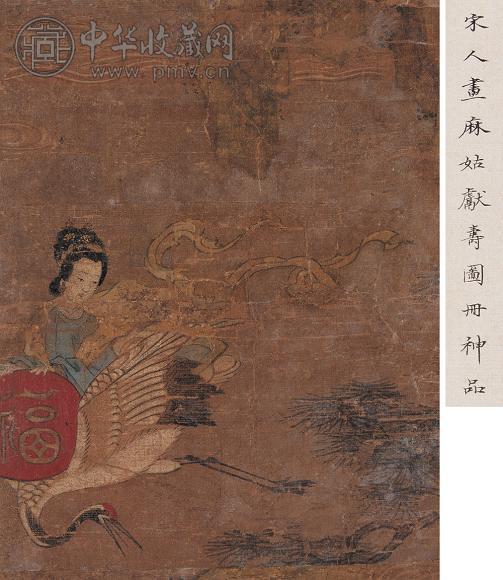 中华收藏网
www.pmv.cn
宋人畫麻姑獻壽圖冊神品
福